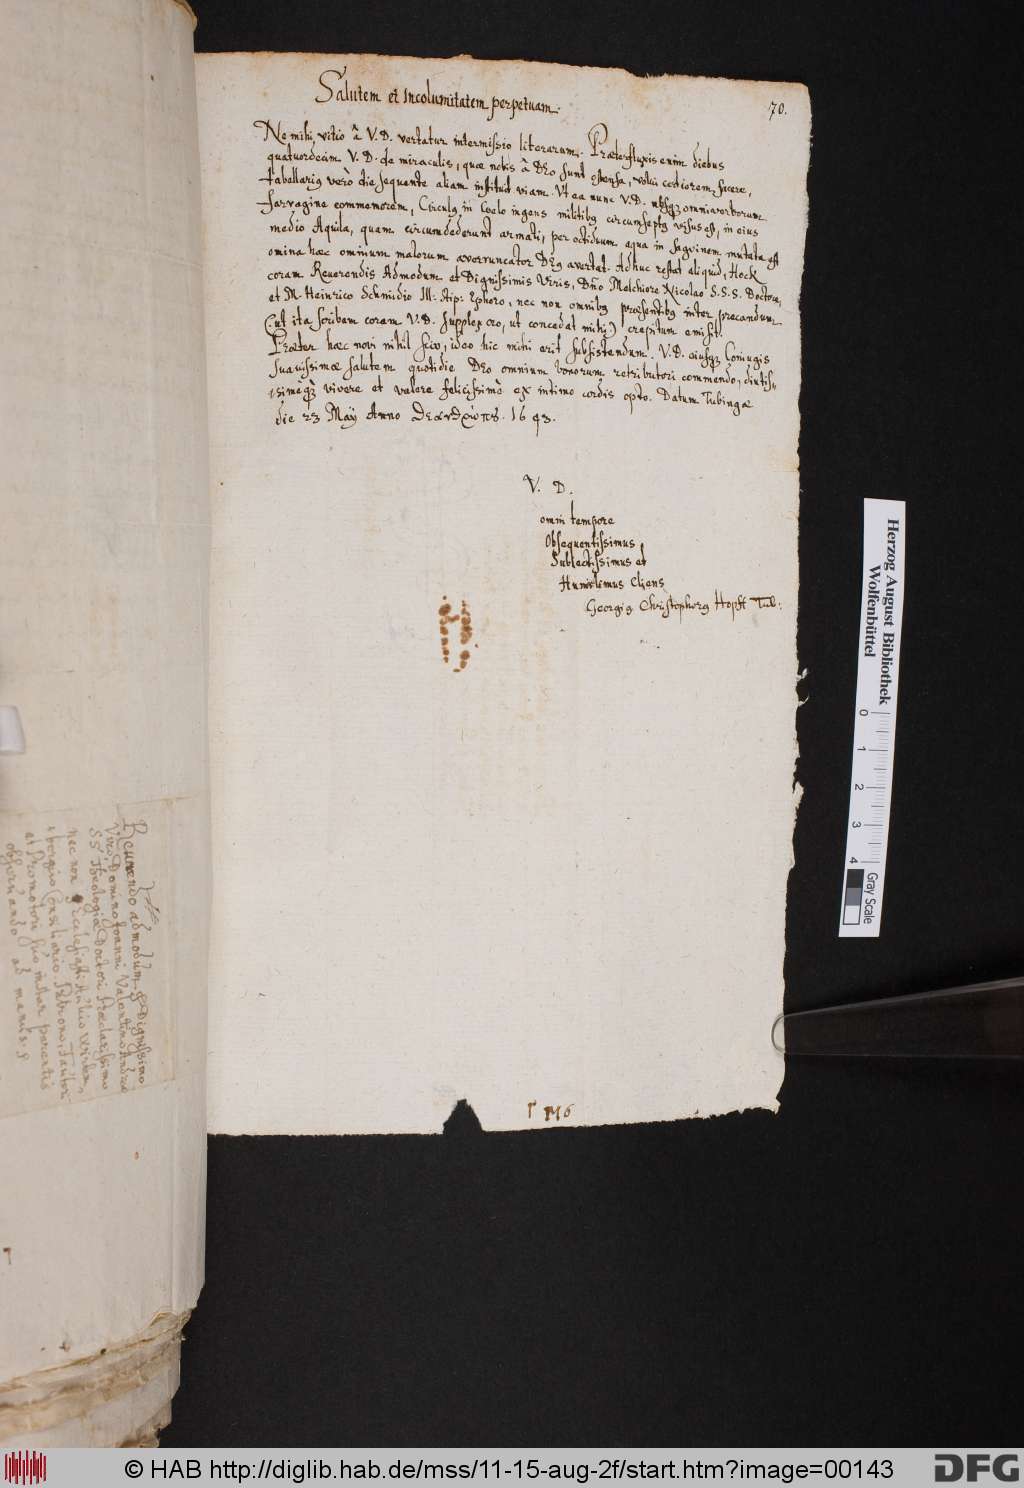 70.
Salutem et Incolumitatem perpetuam.
Ne mihi vitio â V. D. vertatur intermissio literarum. Præterfluxis enim diebus
quatuordecim V. D. de miraculis, quæ nobis â DEo sunt ostensa, volui certiorem facere,
tabellarius verò die sequente aliam instituit viam. Ut ea nunc V. D. absque omni verborum
farragine commemorem, Circulus in Coelo ingens militibus circumseptus visus est, in eius
medio Aquila, quam circumdederunt armati, per octiduum aqua in sagvinem mutata est
omina hæc omnium malorum averruncator DEus avertat. Adhuc restat aliquid, Hock
coram Reverendis Admodum et Dignissimis Viris, Dño Melchiore Nicolao S. S. S. Doctore,
et M. Heinrico Schmidio Ill: Stip: Ephoro, nec non omnibus præsentibus inter precandum
(ut ita scribam coram V. D. supplex oro, ut concedat mihi) crepitum emisit.
Præter hæc novi nihil scio, ideo hic mihi erit subsistendum. V. D. eiusque Coniugis
suavissimæ salutem quotidie DEo omnium bonorum retributori commendo, diutis-
simèque vivere et valere felicissimè ex intimo cordis opto. Datum Tubingæ
die 23 Maÿ Anno 1643.
V. D.
omni tempore
Obsequentissimus
Subiectissimus et
Humilimus Cliens
Georgius Christophorus Hopff Tub:
Reverendo admodum & Dignissimo
Viro, Domino Joanni Valentino Andreæ
SS. Theologiæ Doctori Præclarissimo
nec non
Consiliario, Patrono, Fautori
et Promotori suo instar parentis
observando ad manus.
Herzog August Bibliothek
Wolfenbüttel
0 1 2 3 4
Gray Scale
© HAB http://diglib.hab.de/mss/11-15-aug-2f/start.htm?image=00143
DFG